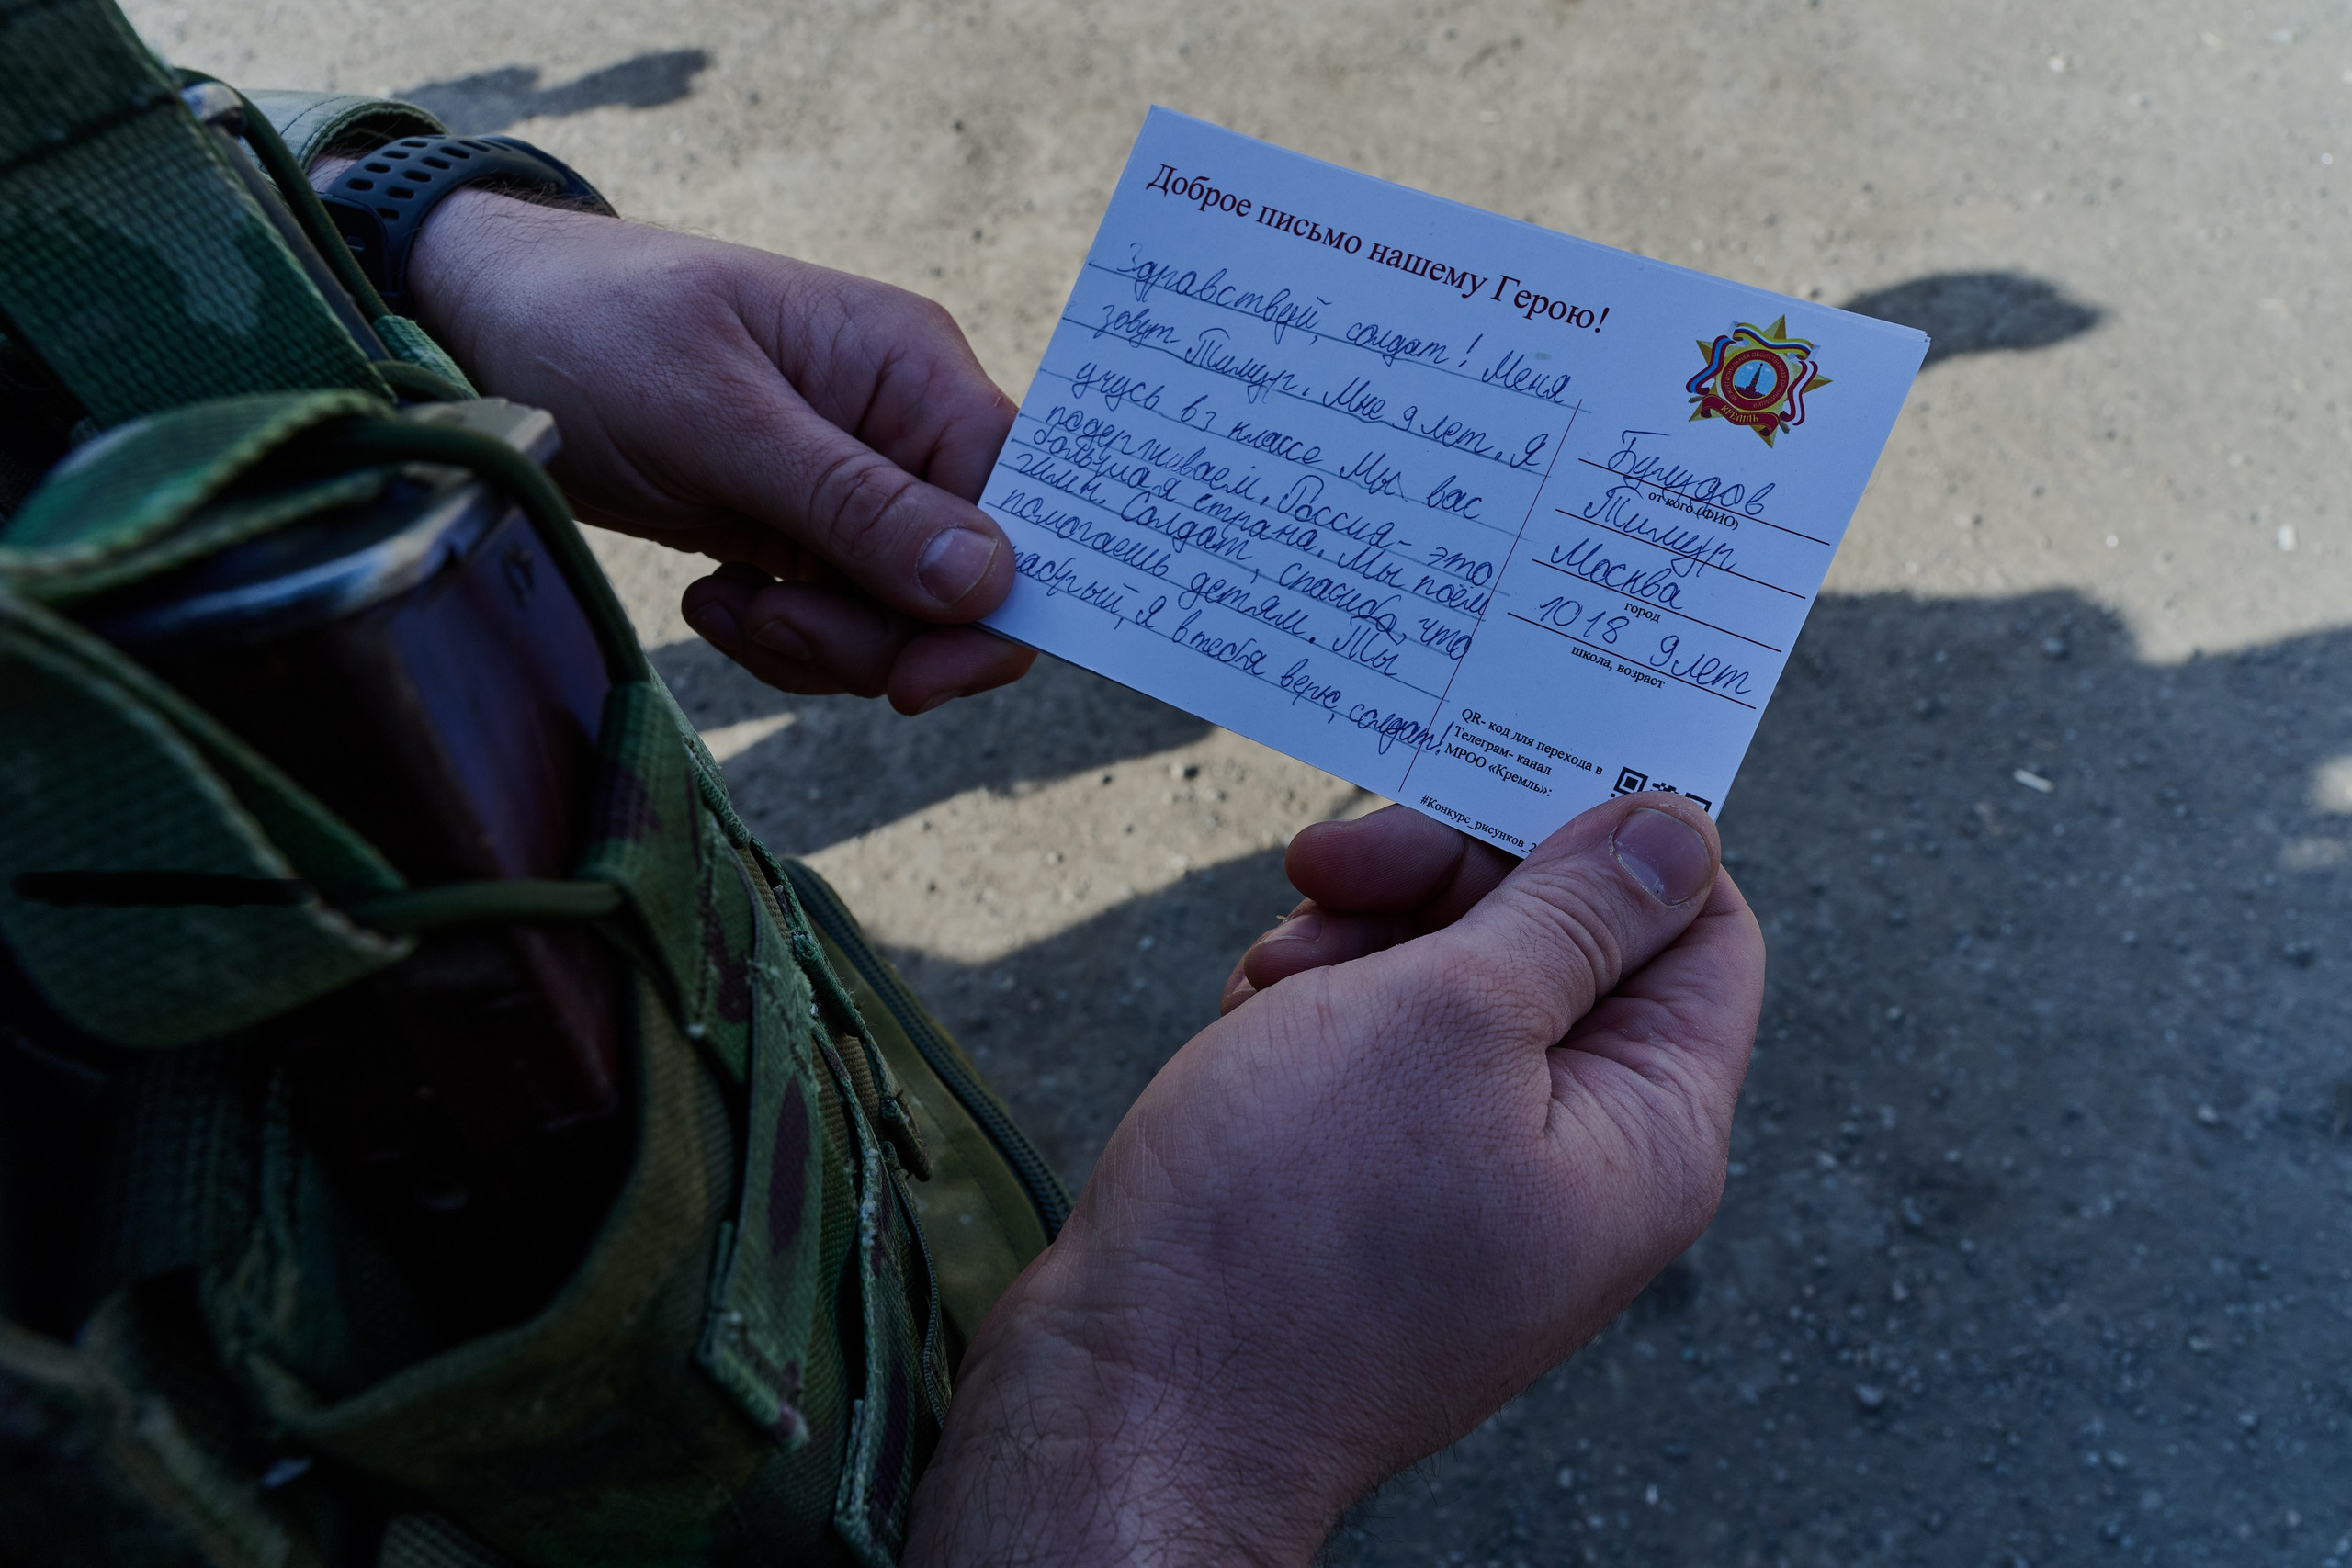 Доброе письмо нашему Герою!
Здравствуй, солдат! Меня
зовут Тимур. Мне 9 лет. Я
учусь в 3 классе Мы вас
подерживаем. Россия - это
большая страна. Мы поём
гимн. Солдат, спасибо, что
помогаешь детям. Ты
храбрый, Я в тебя верю, солдат!
КРЕМЛЬ
Булудов
от кого (ФИО)
Тимур
Москва
город
1018 9 лет
школа, возраст
QR- код для перехода в
Телеграм- канал
МРОО «Кремль»:
#Конкурс_рисунков_2